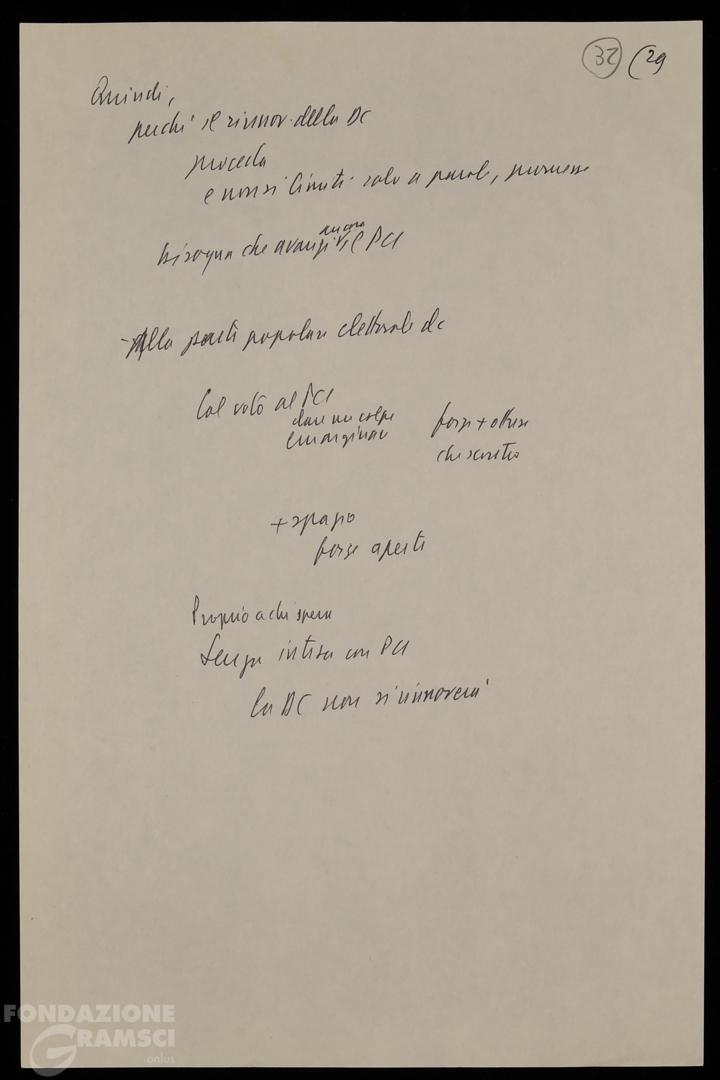 32 (29
Quindi,
perché il rinnov. della DC
proceda
e non si limiti solo a parole, promesse
ancora
bisogna che avanzi il PCI
- Alla parte popolare elettorale dc
Col voto al PCI
dare un colpo
emarginare
forze + ottuse
che
+ spazio
forze aperte
Proprio a chi spera
Senza intesa con PCI
la DC non si rinnoverà
FONDAZIONE
GRAMSCI
onlus